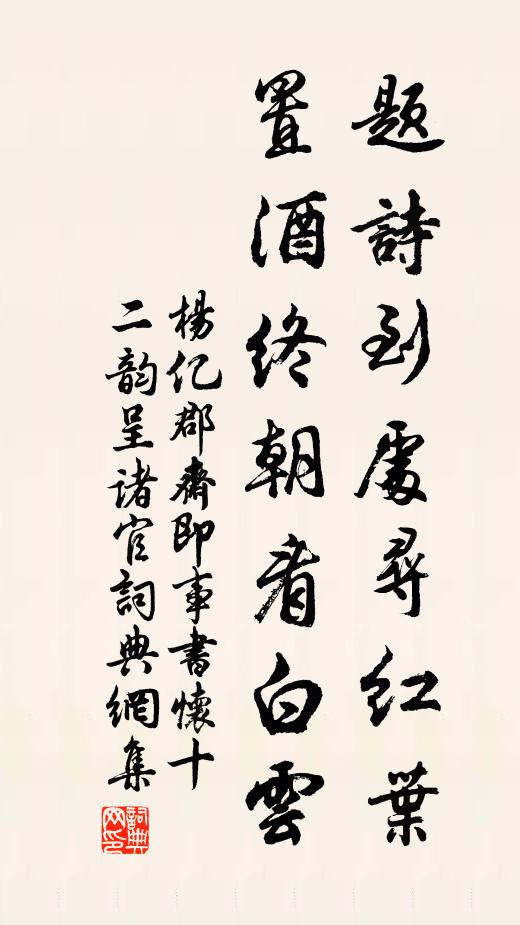 題詩到處尋紅葉
置酒終朝看白雲
楊億郡齋即事書懷十
二韵呈諸官詞典網集
詞典網印